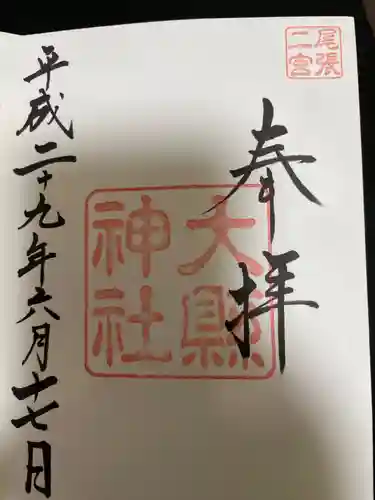 尾張二宮
奉拝
大縣神社
平成二十九年六月十七日